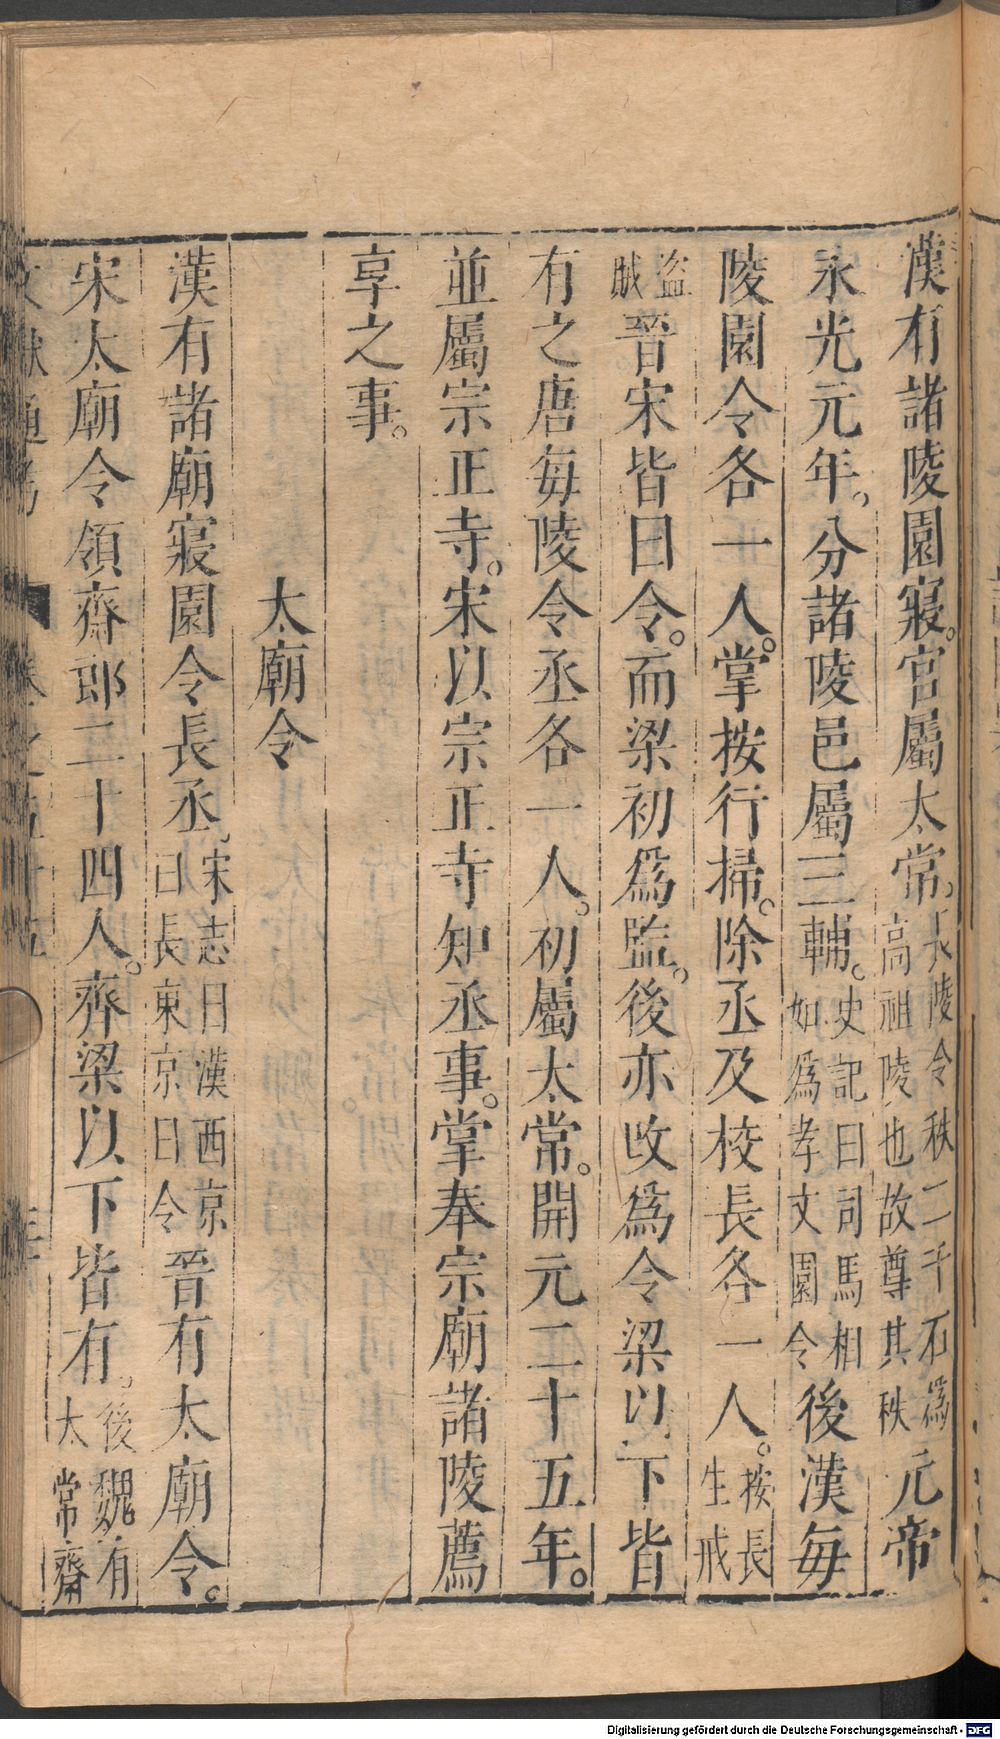 漢有諸陵園寢。官屬太常。長陵令秩二千石爲高祖陵也故尊其秩元帝
永光元年。分諸陵邑屬三輔。史記曰司馬相如爲孝文園令後漢每
陵園令各一人。掌按行掃。除丞及校長各一人。按長生戒
盜賊晉宋皆曰令。而梁初爲監。後亦改爲令梁以下皆
有之唐每陵令丞各一人。初屬太常。開元二十五年。
並屬宗正寺。宋以宗正寺知丞事。掌奉宗廟諸陵薦
享之事。
太廟令
漢有諸廟寢園令長丞。宋志曰漢西京曰長東京曰令晉有太廟令。
宋太廟令領齋郎二十四人。齊梁以下皆有。後魏有太常齋
文獻通考
Digitalisierung gefördert durch die Deutsche Forschungsgemeinschaft - DFG